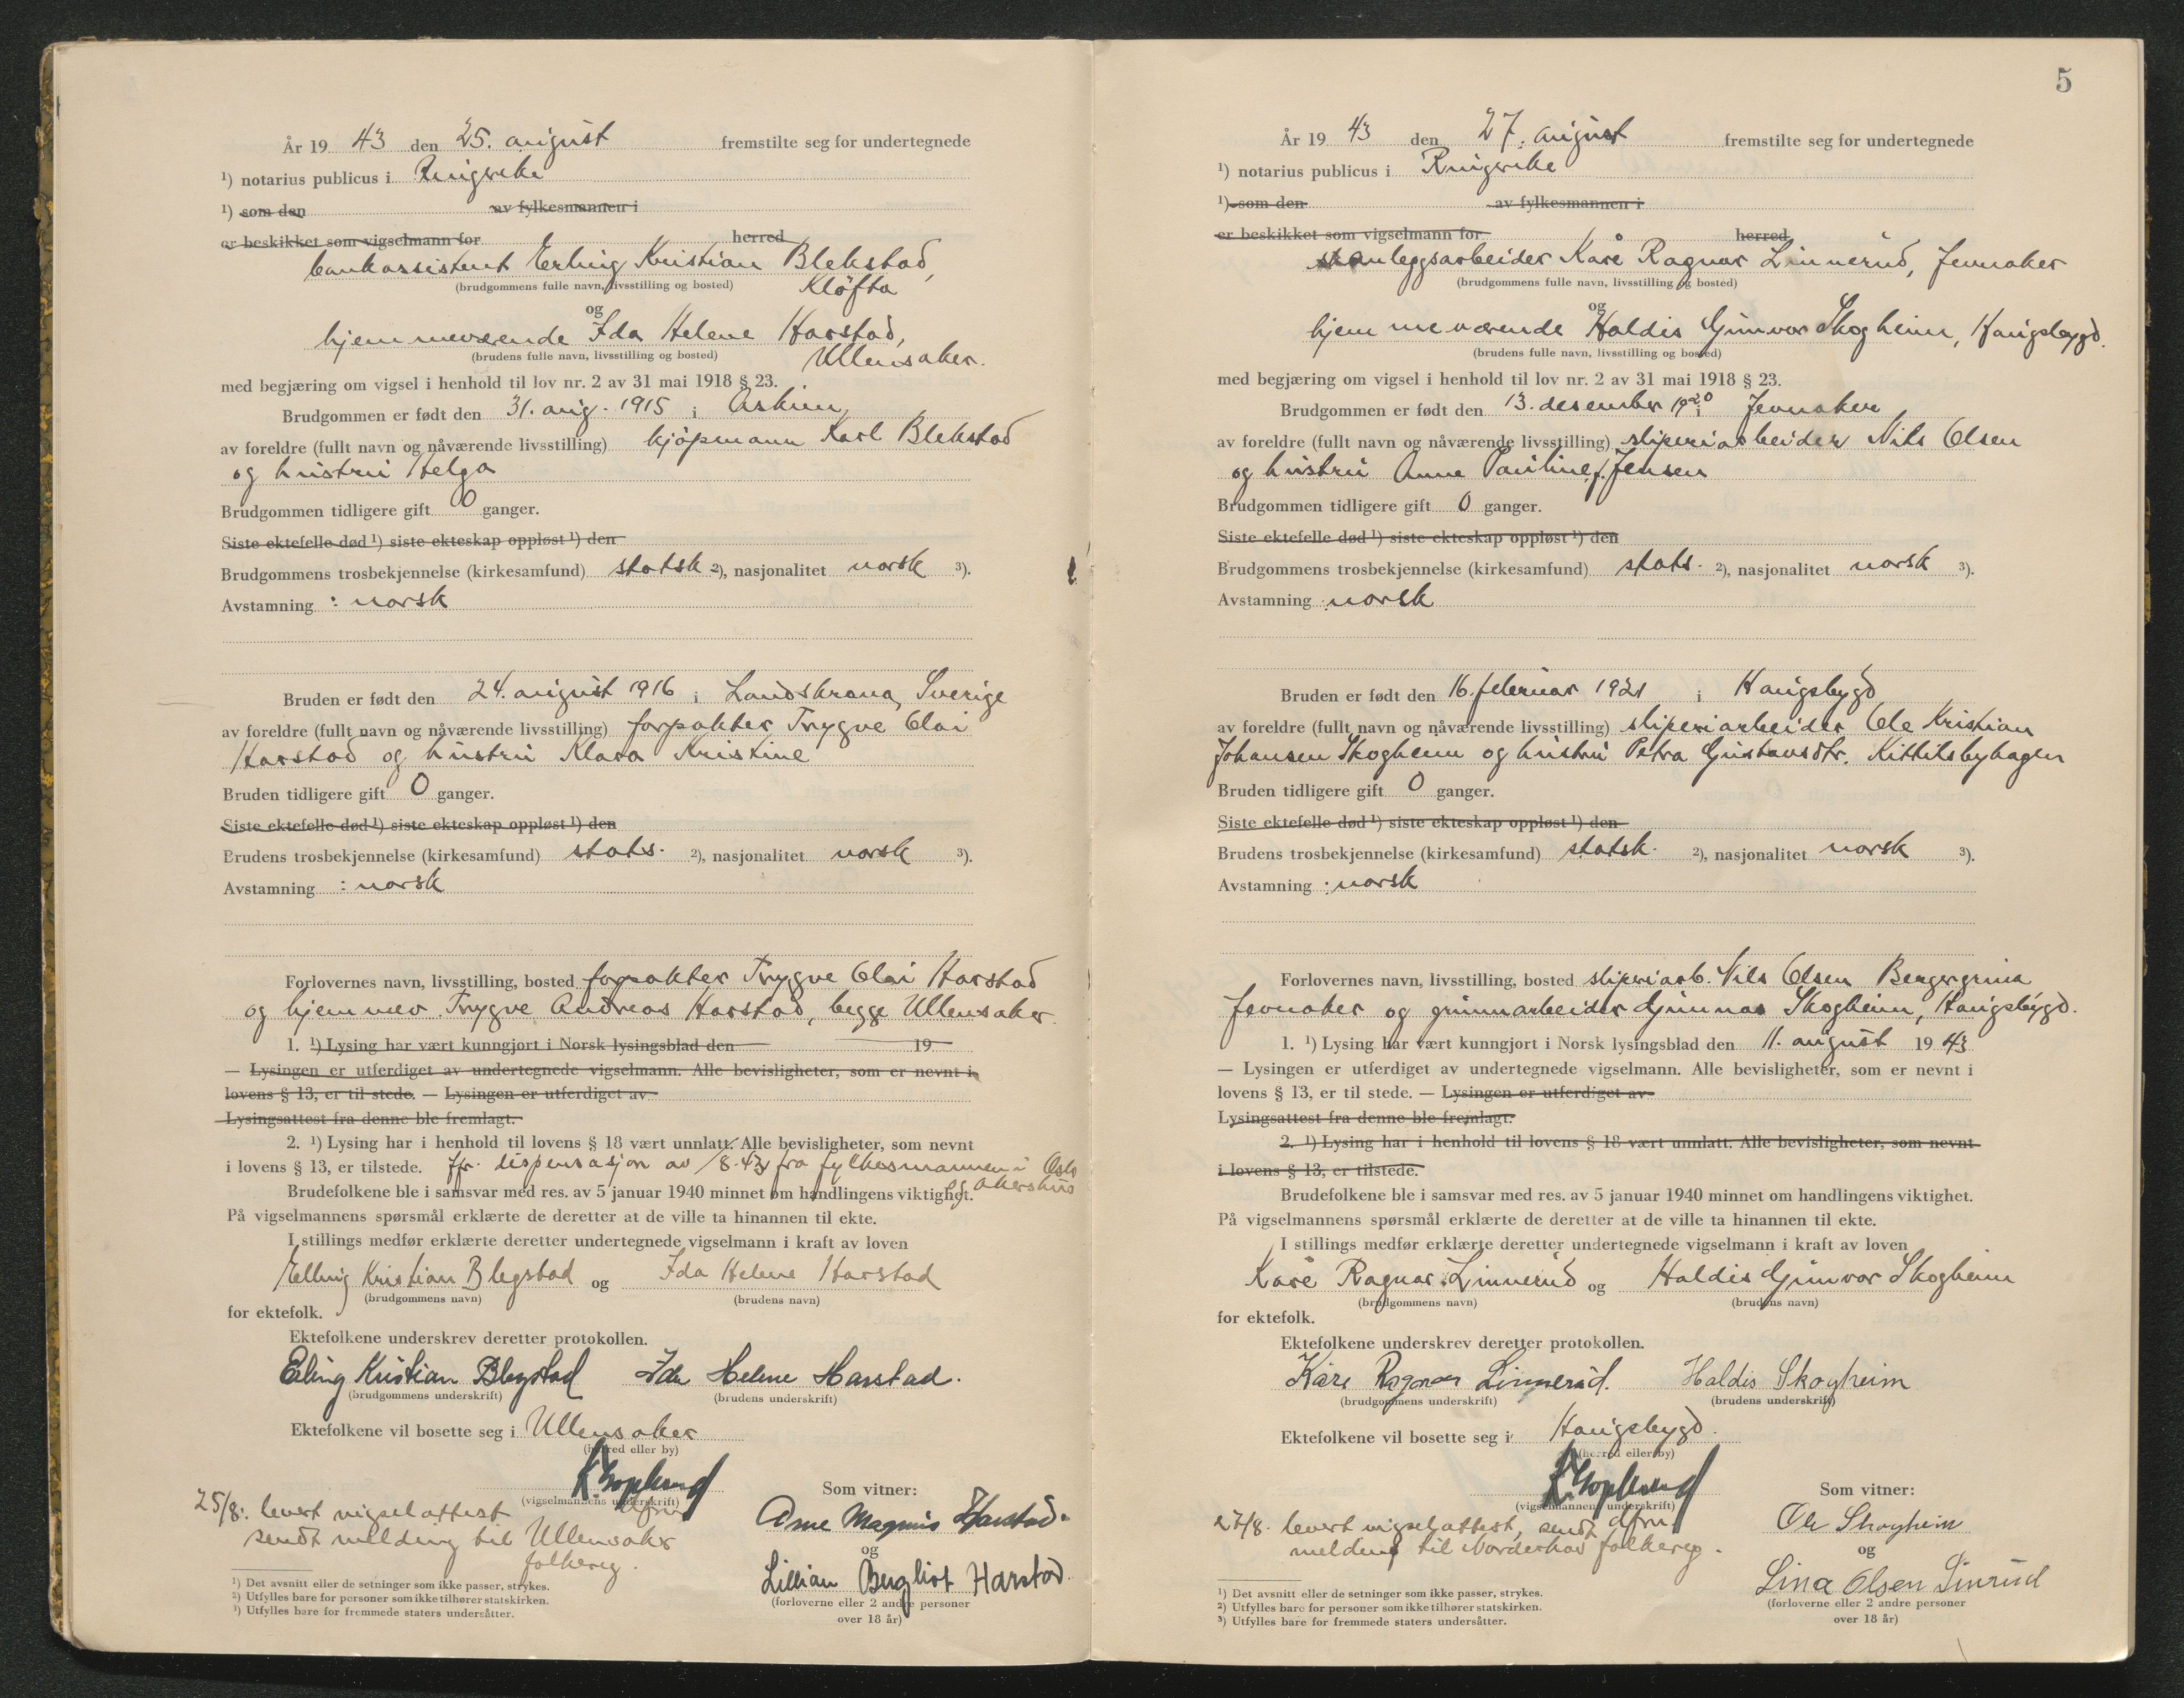 År 19 43 den 25. august fremstilte seg for undertegnede
¹) notarius publicus i Ringerike
¹) som den av fylkesmannen i
er beskikket som vigselmann for herred
bankassistent Erling Kristian Blekstad,
(brudgommens fulle navn, livsstilling og bosted) Kløfta
og
hjemmeværende Ida Helene Harstad,
(brudens fulle navn, livsstilling og bosted) Ullensaker.
med begjæring om vigsel i henhold til lov nr. 2 av 31 mai 1918 § 23.
Brudgommen er født den 31. aug. 1915 i Askim
av foreldre (fullt navn og nåværende livsstilling) kjöpmann Karl Blekstad
og hustru Helga
Brudgommen tidligere gift 0 ganger.
Siste ektefelle død ¹) siste ekteskap oppløst ¹) den
Brudgommens trosbekjennelse (kirkesamfund) statsk ²), nasjonalitet norsk ³).
Avstamning : norsk
Bruden er født den 24. august 1916 i Landskrona, Sverige
av foreldre (fullt navn og nåværende livsstilling) forpakter Trygve Olai
Harstad og hustru Klara Kristine
Bruden tidligere gift 0 ganger.
Siste ektefelle død ¹) siste ekteskap oppløst ¹) den
Brudens trosbekjennelse (kirkesamfund) stats. ²), nasjonalitet norsk ³).
Avstamning : norsk
Forlovernes navn, livsstilling, bosted forpakter Trygve Olai Harstad
og hjemmev. Trygve Andreas Harstad, begge Ullensaker.
1. ¹) Lysing har vært kunngjort i Norsk lysingsblad den 19
— Lysingen er utferdiget av undertegnede vigselmann. Alle bevisligheter, som er nevnt i
lovens § 13, er til stede. — Lysingen er utferdiget av
Lysingsattest fra denne ble fremlagt.
2. ¹) Lysing har i henhold til lovens § 18 vært unnlatt. Alle bevisligheter, som nevnt
i lovens § 13, er tilstede. Jfr. dispensasjon av /8-43 fra fylkesmannen i Oslo
og Akershus
Brudefolkene ble i samsvar med res. av 5 januar 1940 minnet om handlingens viktighet.
På vigselmannens spørsmål erklærte de deretter at de ville ta hinannen til ekte.
I stillings medfør erklærte deretter undertegnede vigselmann i kraft av loven
Elling Kristian Blegstad og Ida Helene Harstad
(brudgommens navn) (brudens navn)
for ektefolk.
Ektefolkene underskrev deretter protokollen.
Erling Kristian Blegstad Ida Helene Harstad.
(brudgommens underskrift) (brudens underskrift)
Ektefolkene vil bosette seg i Ullensaker
(herred eller by)
(vigselmannens underskrift)
Som vitner:
25/8: levert vigselattest
sendt melding til Ullensaker
folkereg.
Arne Magnus Harstad.
og
Lillian Bergliot Harstad.
(forloverne eller 2 andre personer
over 18 år)
¹) Det avsnitt eller de setninger som ikke passer, strykes.
²) Utfylles bare for personer som ikke tilhører statskirken.
³) Utfylles bare for fremmede staters undersåtter.
5
År 19 43 den 27. august fremstilte seg for undertegnede
¹) notarius publicus i Ringerike
¹) som den av fylkesmannen i
er beskikket som vigselmann for herred
anleggsarbeider Kåre Ragnar Linnerud, Jevnaker
(brudgommens fulle navn, livsstilling og bosted)
og
hjemmeværende Haldis Gunvor Skogheim, Haugsbygd.
(brudens fulle navn, livsstilling og bosted)
med begjæring om vigsel i henhold til lov nr. 2 av 31 mai 1918 § 23.
Brudgommen er født den 13. desember 1920 i Jevnaker
av foreldre (fullt navn og nåværende livsstilling) sliperiarbeider Nils Olsen
og hustru Anne Pauline, f. Jensen
Brudgommen tidligere gift 0 ganger.
Siste ektefelle død ¹) siste ekteskap oppløst ¹) den
Brudgommens trosbekjennelse (kirkesamfund) stats. ²), nasjonalitet norsk ³).
Avstamning : norsk
Bruden er født den 16. februar 1921 i Haugsbygd
av foreldre (fullt navn og nåværende livsstilling) sliperiarbeider Ole Kristian
Johansen Skogheim og hustru Petra Gustavsdtr. Kittilsbyhagen
Bruden tidligere gift 0 ganger.
Siste ektefelle død ¹) siste ekteskap oppløst ¹) den
Brudens trosbekjennelse (kirkesamfund) statsk. ²), nasjonalitet norsk ³).
Avstamning : norsk
Forlovernes navn, livsstilling, bosted sliperiarb. Nils Olsen
Jevnaker og grunnarbeider Gunnar Skogheim, Haugsbygd.
1. ¹) Lysing har vært kunngjort i Norsk lysingsblad den 11. august 19 43
— Lysingen er utferdiget av undertegnede vigselmann. Alle bevisligheter, som er nevnt i
lovens § 13, er til stede. — Lysingen er utferdiget av
Lysingsattest fra denne ble fremlagt.
2. ¹) Lysing har i henhold til lovens § 18 vært unnlatt. Alle bevisligheter, som nevnt
i lovens § 13, er tilstede.
Brudefolkene ble i samsvar med res. av 5 januar 1940 minnet om handlingens viktighet.
På vigselmannens spørsmål erklærte de deretter at de ville ta hinannen til ekte.
I stillings medfør erklærte deretter undertegnede vigselmann i kraft av loven
Kåre Ragnar Linnerud og Haldis Gunvor Skogheim
(brudgommens navn) (brudens navn)
for ektefolk.
Ektefolkene underskrev deretter protokollen.
Kåre Ragnar Linnerud. Haldis Skogheim
(brudgommens underskrift) (brudens underskrift)
Ektefolkene vil bosette seg i Haugsbygd.
(herred eller by)
(vigselmannens underskrift)
Som vitner:
27/8. levert vigselattest, sendt
melding til Norderhov folkereg.
Ole Skogheim
og
Lina Olsen Linrud
(forloverne eller 2 andre personer
over 18 år)
¹) Det avsnitt eller de setninger som ikke passer, strykes.
²) Utfylles bare for personer som ikke tilhører statskirken.
³) Utfylles bare for fremmede staters undersåtter.